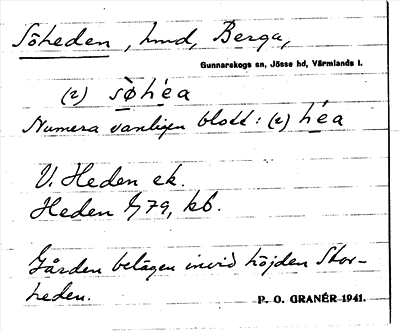 Söheden, hmd, Berga,
Gunnarskogs sn, Jösse hd, Värmlands l.
(2) sø̀héa
Numera vanligen blott: (2) héa
V. Heden ek.
Heden 1/79, kb.
Gården belägen invid höjden Stor-
heden.
P. O. GRANÉR 1941.